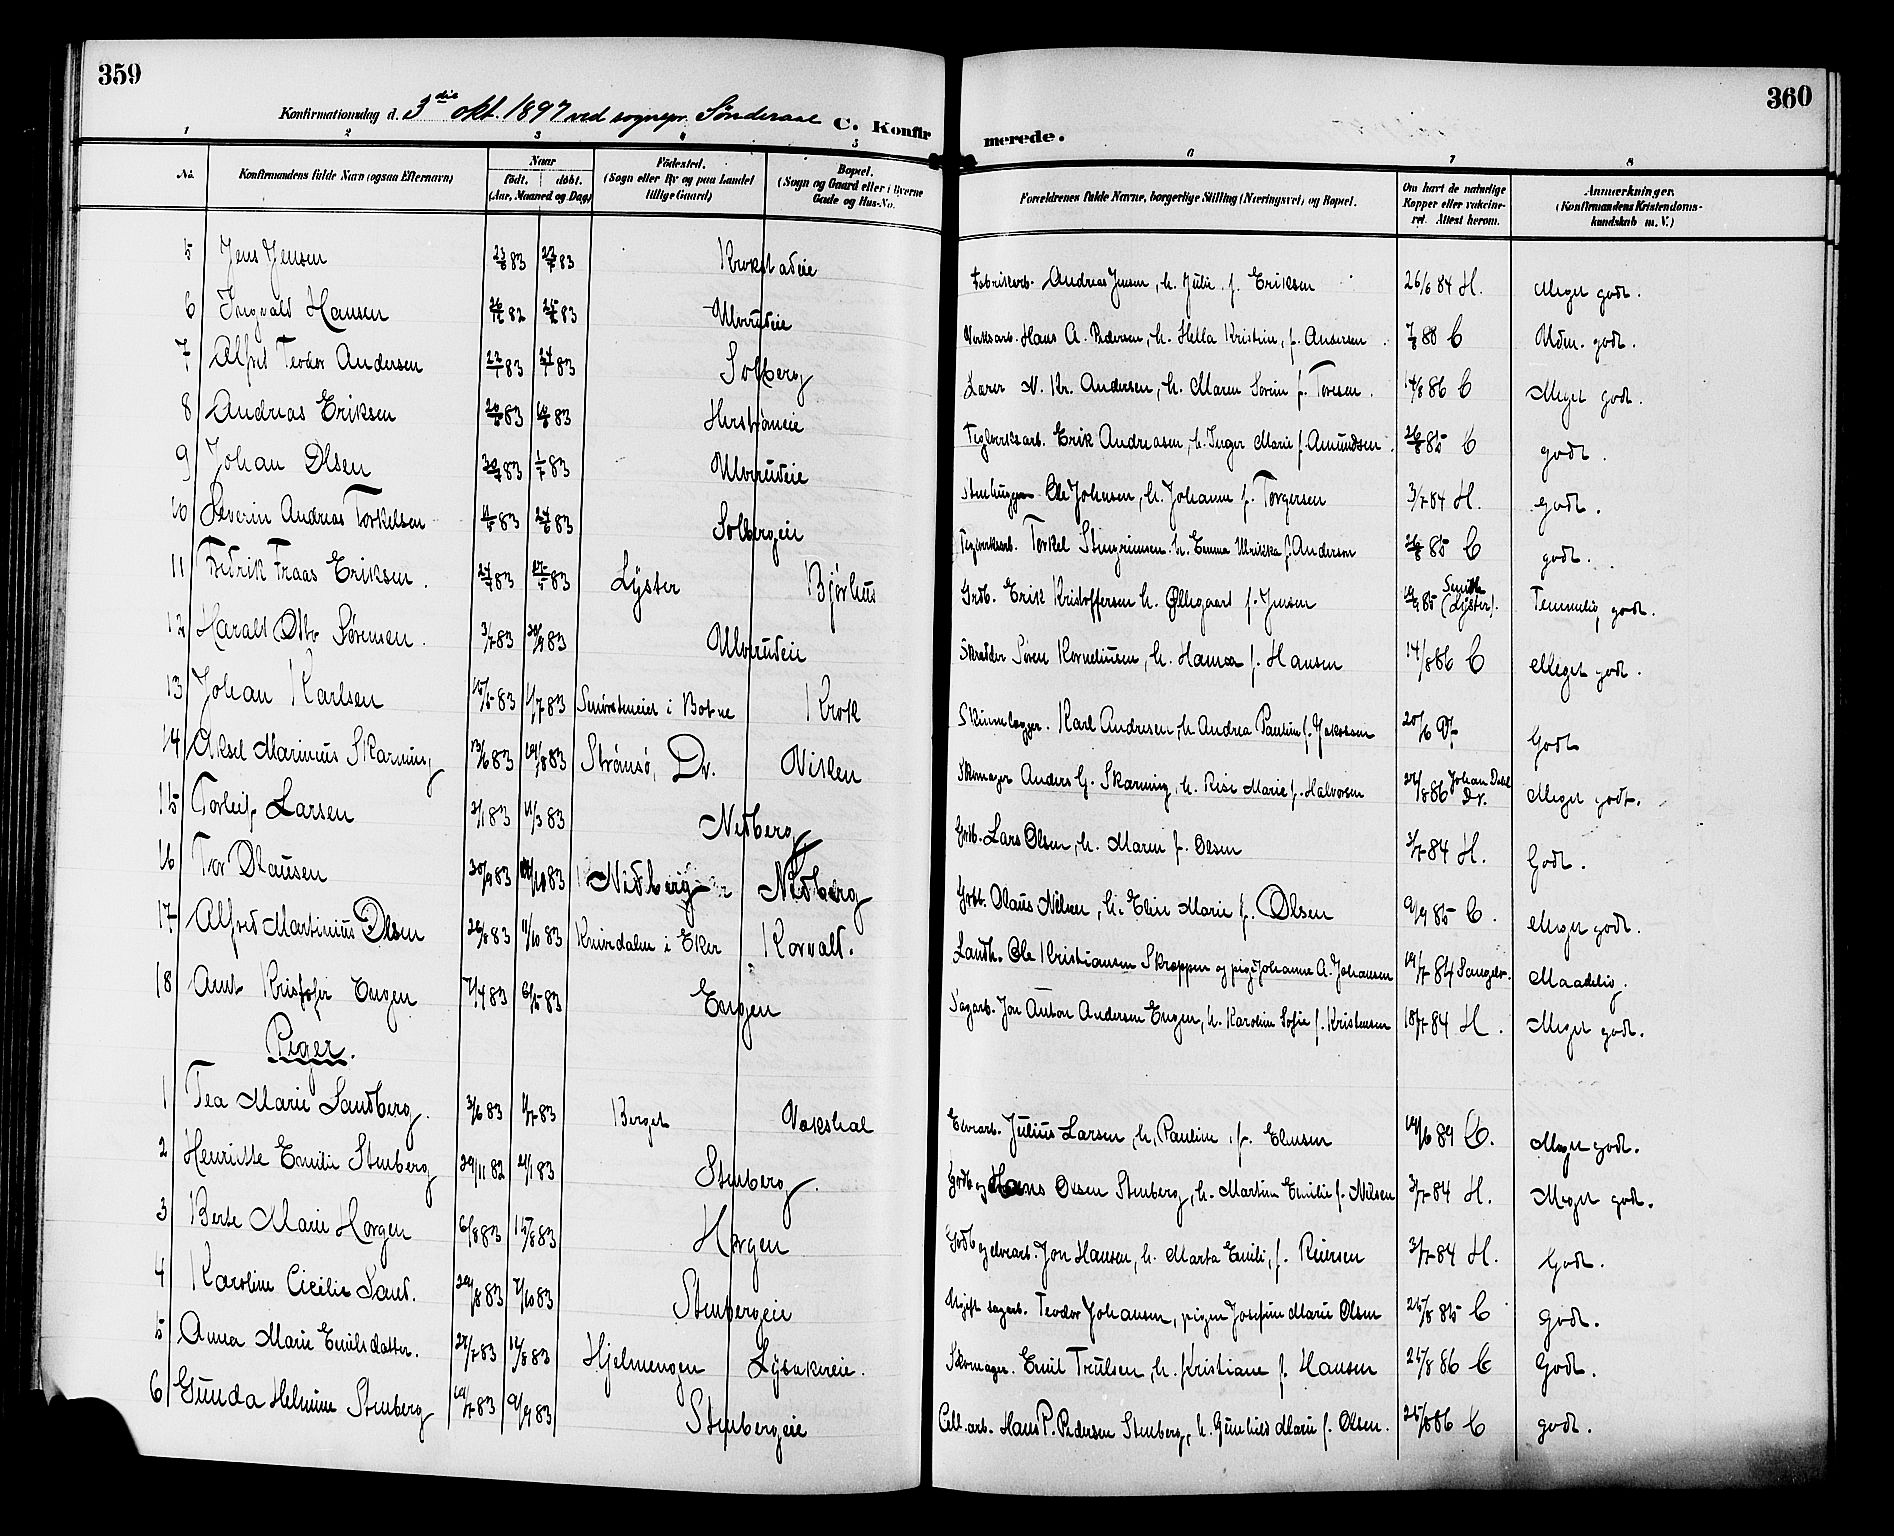 359
360
Konfirmationsdag d. 3die okt. 1897 ved sognepr. Sønderaal C. Konfir merede.
1 2 3 4 5 6 7 8
No. Konfirmandens fulde Navn (ogsaa Efternavn) Naar født. døbt. (Aar, Maaned og Dag) Fødested. (Sogn eller By og paa Landet tillige Gaard) Bopæl. (Sogn og Gaard eller i Byerne Gade og Hus-No. Forældrenes fulde Navne, borgerlige Stilling (Næringsvei) og Bopæl. Om havt de naturlige Kopper eller vakcineret. Attest herom. Anmærkninger. (Konfirmandens Kristendomskundskab m. V.)
5 Jens Jensen 83 83 Krokstadeie Fabrikarb. Andreas Jensen, h. Julie f. Eriksen 26/6 84 H. Meget godt.
6 Ingvald Hansen 82 83 Ulverudeie Verksarb. Hans A. Pedersen, h. Hella Kristine, f. Andersen C Udm. godt.
7 Alfred Teodor Andersen 83 83 Solberg Lærer N. Kr. Andersen, h. Maren Sorine f. Toresen. 14/8 86 C Meget godt.
8 Andreas Eriksen 83 83 Herstrømeie Teglverksarb. Erik Andreasen, h. Inger Marie f. Amundsen. 85 C godt.
9 Johan Olsen 83 1/7 83 Ulverudeie Stenhugger Ole Johnsen, h. Johanne f. Torgersen 3/7 84 H. godt.
10 Severin Andreas Torkelsen 83 83 Solbergeie Teglverksarb. Torkel Stengrimsen h. Emma Ulrikka f. Anderson 85 C godt.
11 Fredrik Fraas Eriksen. 83 83 Lyster Bjørhus Grdb. Erik Kristoffersen h. Øllegaard f. Jensen 85 (Lyster). Temmelig godt.
12 Harald Otto Sørensen. 3/7 83 83 Ulverudeie Skrædder Søren Korneliussen, h. Hanna f. Hansen 14/8 86 C Meget godt.
13 Johan Karlsen 15/5 83 1/7 83 i Botne Krok Skinnelægger. Karl Andresen, h. Andrea Pauline f. Jakobsen 20/6 Godt
14 Aksel Marinius Skarning 13/6 83 19/8 83 Strømsø, Dr. Visken Skomager Anders G. Skarning, h. Risi Marie f. Halvorsen 86 Johan Dahl Dr. Meget godt.
15 Torleif Larsen 2/1 83 11/3 83 Nedberg Grdb. Lars Olsen, h. Maren f. Olsen 3/7 84 H. Godt.
16 Tor Olausen 30/9 83 83 Nedberg Nedberg Grdb. Olaus Nilsen, h. Elise Marie f. Olsen 9/9 85 C. Meget godt.
17 Alfred Martinius Olsen 83 11/10 83 Knivedalen i Eker Korvald. Landh. Ole Kristiansen Skroppen og pige Johanne A. Johansen 19/7 84 Maadelig.
18 Arnt Kristofer Engen 7/4 83 6/5 83 Engen Sagarb. Jon Anton Andersen Engen, h. Karoline Sofie f. Kristensen 18/7 84 H. Meget godt.
Piger.
1 Tea Marie Sandberg. 3/6 83 1/7 83 Berget Vokshal Elvearb. Julius Larsen, h. Pauline, f. Elensen 19/6 89 C. Meget godt.
2 Henriette Emilie Stenberg 29/11 82 21/1 83 Stenberg. Hans Olsen Stenberg, h. Martine Emilie f. Nilsen 3/7 84 H. Meget godt.
3 Berte Marie Horgen 6/8 83 15/8 83 Horgen Grdb og elvearb. Jon Hansen, h. Marta Emilie, f. Reiersen 3/7 84 H. Godt.
4 Karoline Cicilie Sand. 29/8 83 7/10 83 Stenbergeie Ugift sagarb. Teodor Johansen, pigen Josefine Marie Olsen 25/8 85 C Godt.
5 Anna Marie Emilsdatter. 83 12/8 83 Hjelmengen Lysakereie. Skomager. Emil Trulsen, h. Kristiane f. Hansen 25/8 86 C Godt.
6 Gunda Helmine Stenberg 19/7 83 9/9 83 Stenbergeie Cell.arb. Hans P. Pedersen Stenberg, h. Gunhild Marie f. Olsen. 25/8 86 C godt.